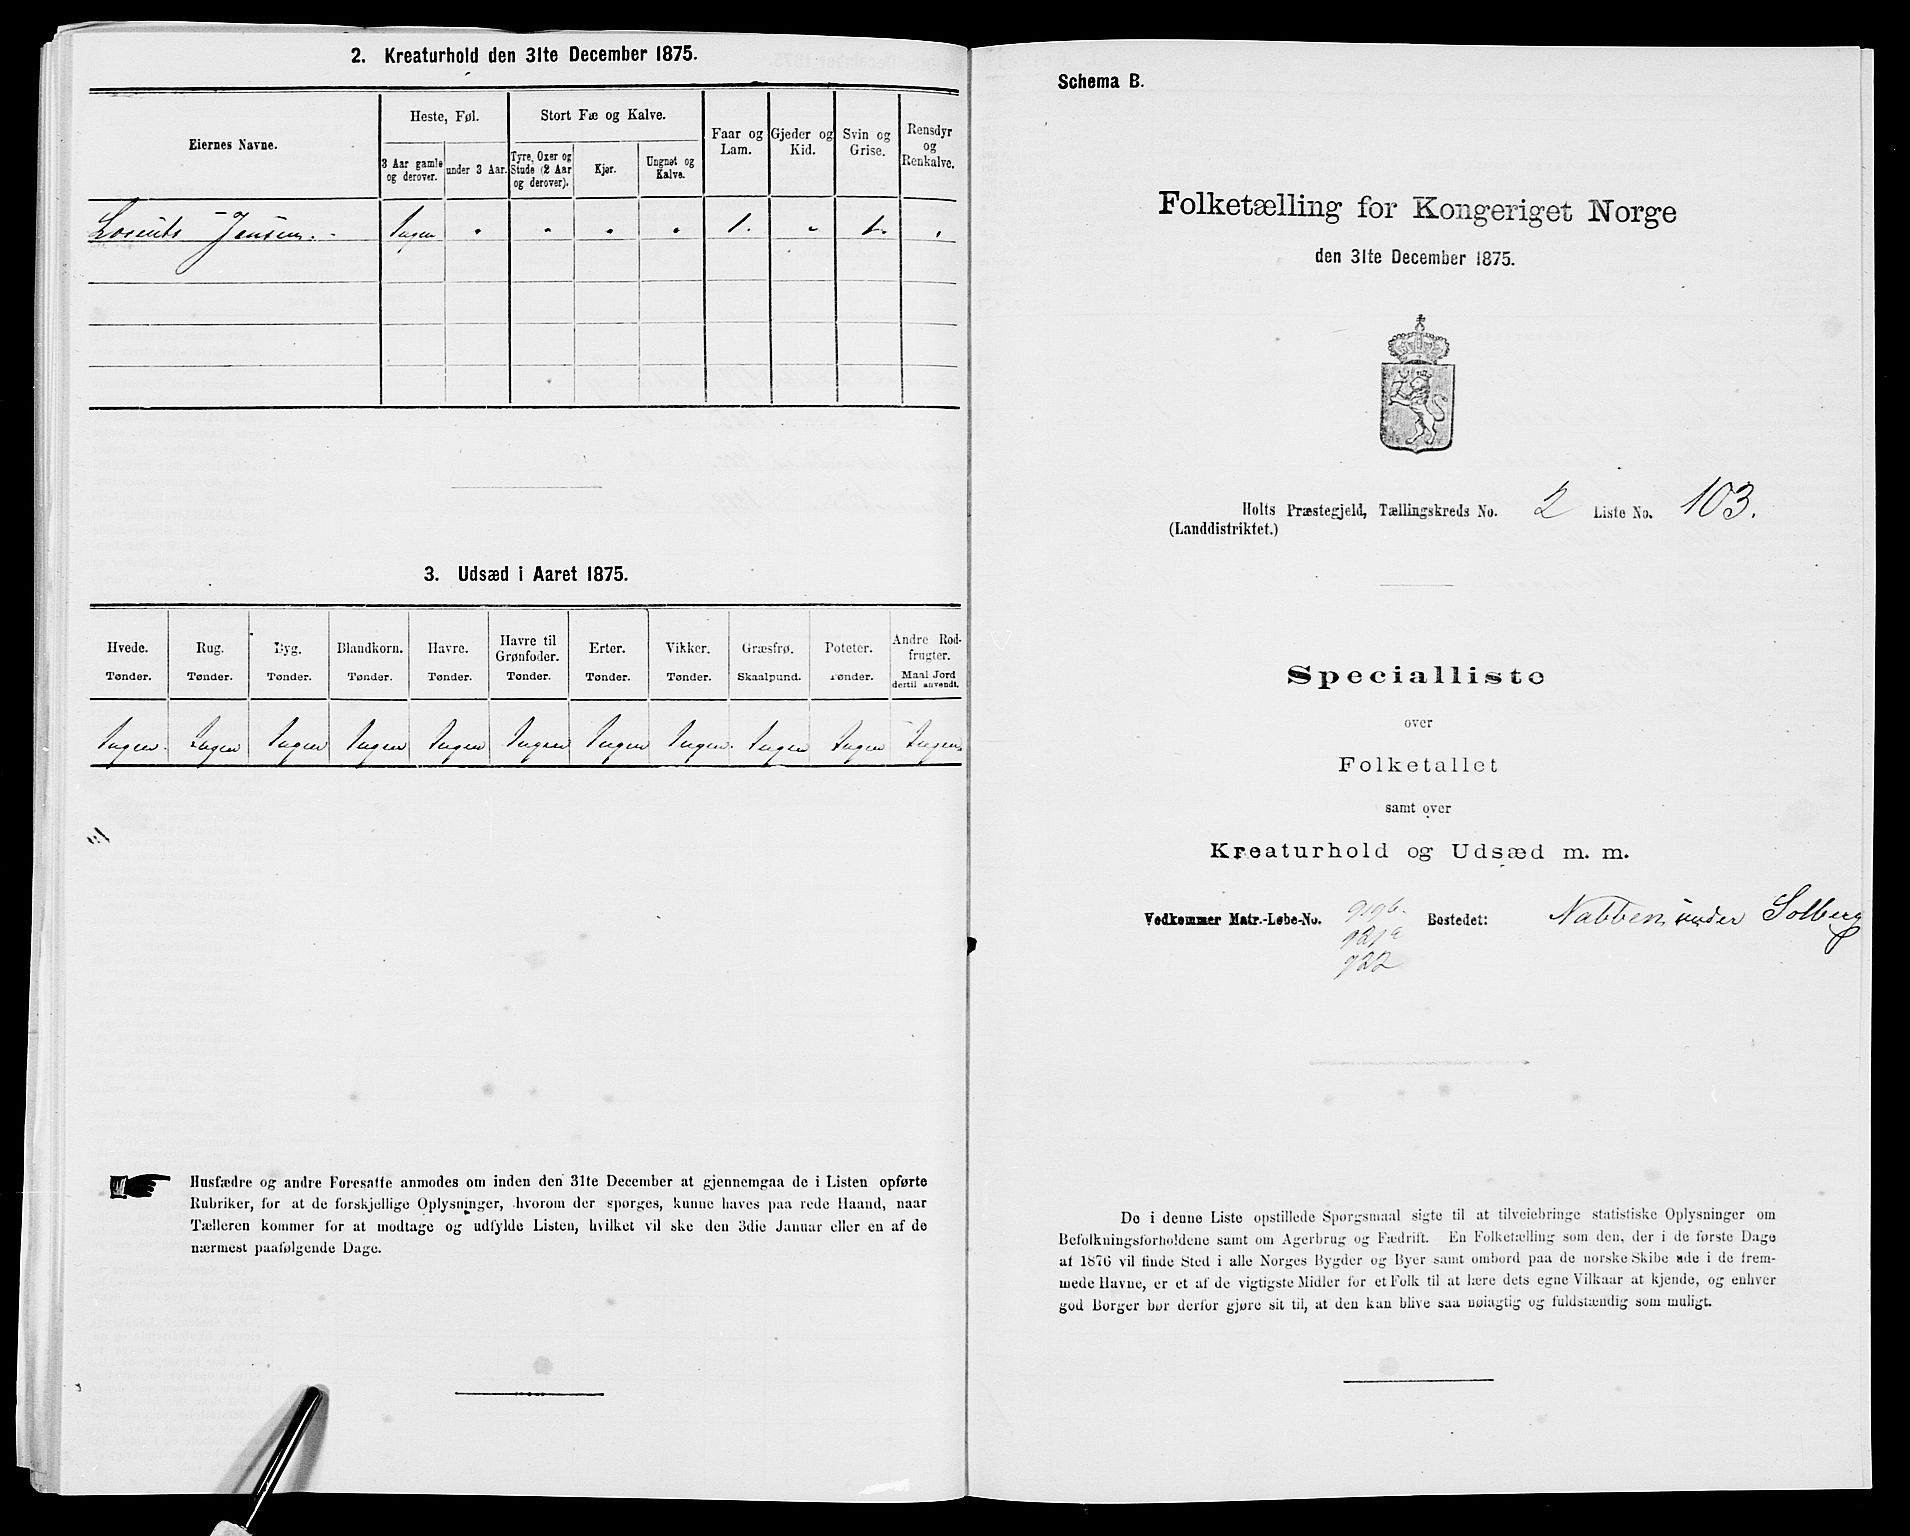 2. Kreaturhold den 31te December 1875.
Eiernes Navne.
Heste, Føl.
3 Aar gamle og derover.
under 3 Aar.
Stort Fæ og Kalve.
Tyre, Oxer og Stude (2 Aar og derover).
Kjør.
Ungnøt og Kalve.
Faar og Lam.
Gjeder og Kid.
Svin og Grise.
Rensdyr og Renkalve.
Lorents Jensen. Ingen " " " " 1. " 1. "
3. Udsæd i Aaret 1875.
Hvede. Tønder.
Rug. Tønder.
Byg. Tønder.
Blandkorn. Tønder.
Havre. Tønder.
Havre til Grønfoder. Tønder.
Erter. Tønder.
Vikker. Tønder.
Græsfrø. Skaalpund.
Poteter. Tønder.
Andre Rodfrugter. Maal Jord dertil anvendt.
Ingen Ingen Ingen Ingen Ingen Ingen Ingen Ingen Ingen Ingen Ingen
Husfædre og andre Foresatte anmodes om inden den 31te December at gjennemgaa de i Listen opførte
Rubriker, for at de forskjellige Oplysninger, hvorom der spørges, kunne haves paa rede Haand, naar
Tælleren kommer for at modtage og udfylde Listen, hvilket vil ske den 3die Januar eller en af de
nærmest paafølgende Dage.
Schema B.
Folketælling for Kongeriget Norge
den 31te December 1875.
Holts Præstegjeld, Tællingskreds No. 2 Liste No. 103.
(Landdistriktet.)
Specialliste
over
Folketallet
samt over
Kreaturhold og Udsæd m. m.
Vedkommer Matr.-Løbe-No. 919b. Bostedet: Nabben under Solberg
921a
922
De i denne Liste opstillede Spørgsmaal sigte til at tilveiebringe statistiske Oplysninger om
Befolkningsforholdene samt om Agerbrug og Fædrift. En Folketælling som den, der i de første Dage
af 1876 vil finde Sted i alle Norges Bygder og Byer samt ombord paa de norske Skibe ude i de frem-
mede Havne, er et af de vigtigste Midler for et Folk til at lære dets egne Vilkaar at kjende, og enhver
god Borger bør derfor gjøre sit til, at den kan blive saa nøiagtig og fuldstændig som muligt.